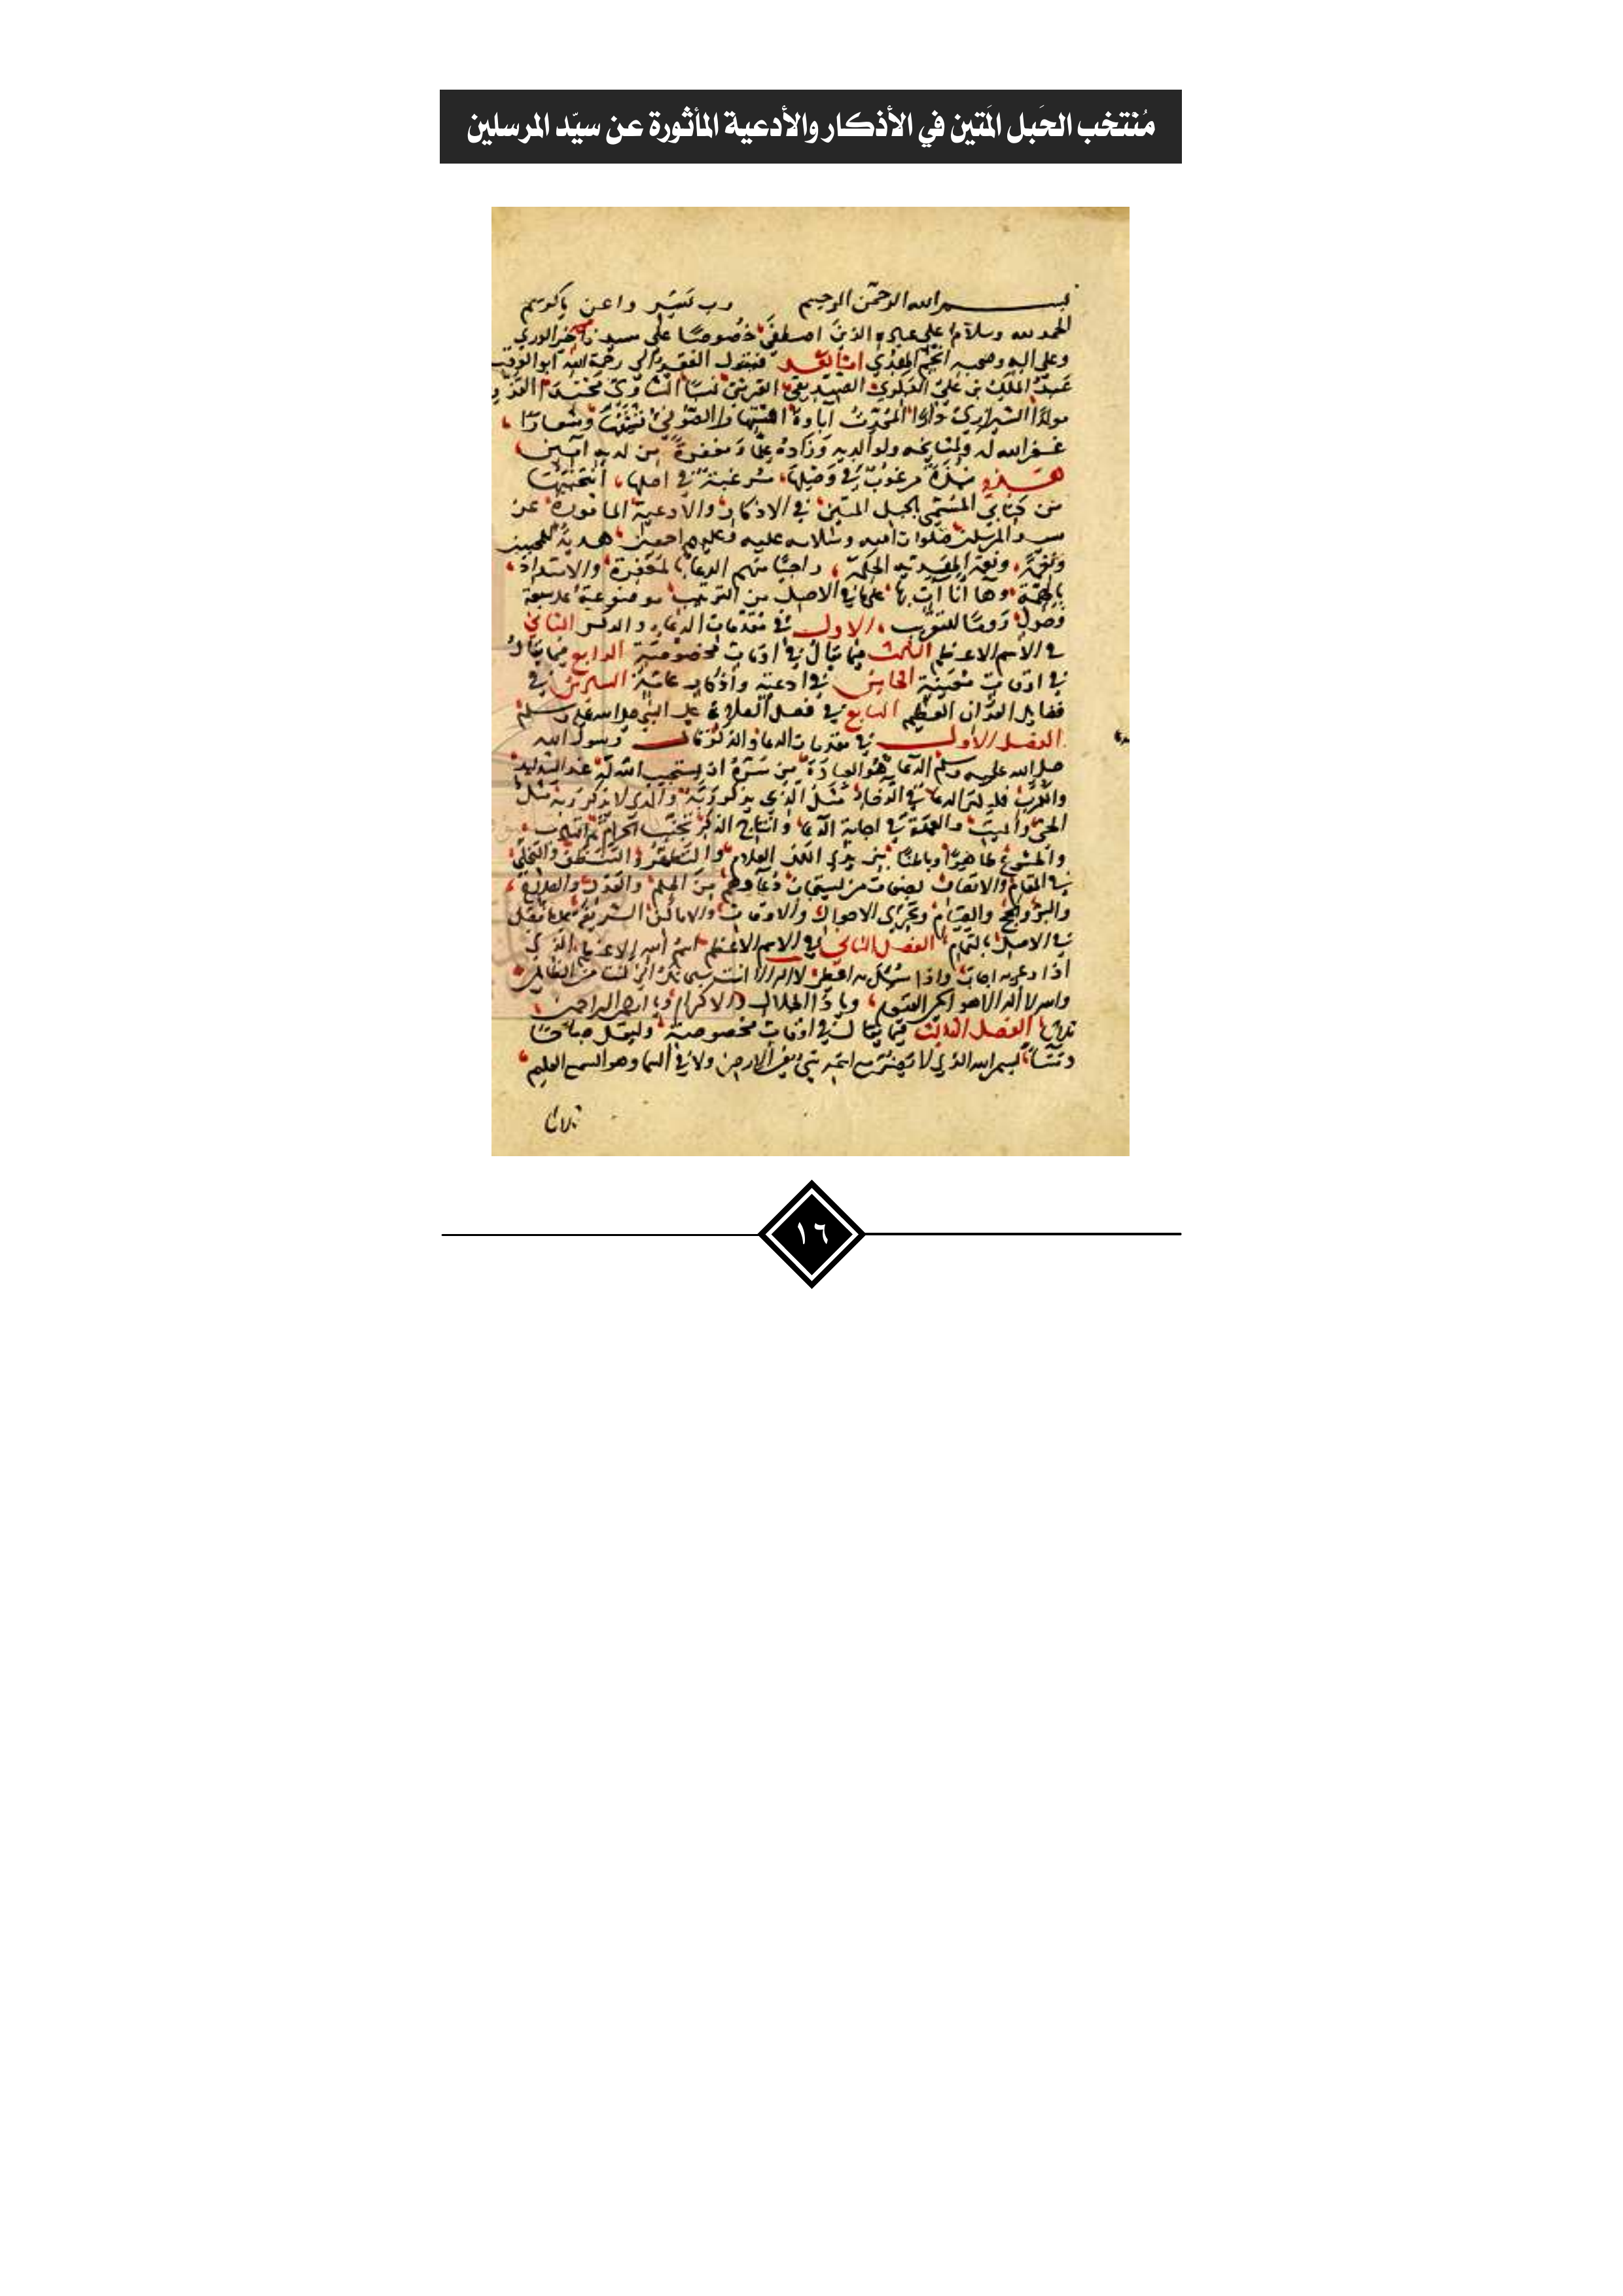 مُنتخب الحَبل المَتين في الأذكار والأدعية المأثورة عن سيّد المرسلين
بسم الله الرحمن الرحيم رب يسر واعن يا كريم
الحمد لله وسلام على عباده الذين اصطفى خصوصًا على سيدنا خير الورى
وعلى اله وصحبه انجم الهدى اما بعد فيقول الفقير الى رحمة الله ابو الوقت
عبد الملك بن علي الصديقي القرشي نسبًا
مولدًا الشيرازي
غفر الله له ولمشايخه ولوالديه وزاده علمًا ومغفرة من لديه آمين
هذه نبذة مرغوب في اصلها، انتخبتها
من كتابي المسمى بالحبل المتين في الاذكار والأدعية المأثورة عن
سيد المرسلين صلوات الله وسلامه عليه وعليهم اجمعين هدية للمحبين
راجيًا منهم الدعا بالمغفرة والاستداد
بالهمة وها أنا آت بها على ما في الاصل من الترتيب موضوعة على سبعة
فصول الاول في مقدمات الدعاء والذكر الثاني
في الاسم الاعظم الثالث فيما يقال في اوقات مخصوصة الرابع فيما يقال
في اوقات معينة الخامس في ادعية وأذكار عامة السادس في
فضايل القرآن العظيم السابع في فضل الصلاة على النبي صلى الله عليه وسلم
الفصل الأول في مقدمات الدعا والذكر قال رسول الله
صلى الله عليه وسلم الدعاء هو العبادة من سره ان يستجيب الله له عند الشدايد
والكرب فليكثر الدعا في الرخاء مثل الذي يذكر ربه والذي لا يذكر ربه مثل
الحي والميت والعمدة في اجابة الدعا وانتاج الذكر تجنب الحرام
والخشوع ظاهرًا وباطنًا بين يدي
في المقام والاتصاف بصفات من يستجاب دعاؤهم من
والبر والحج والصيام وتحري الاحوال والاوقات والاماكن الشريفة
في الاصل بالتمام الفصل الثاني في الاسم الاعظم اسم الله الاعظم الذي
اذا دعي به اجاب واذا سئل به اعطى لا اله الا انت سبحانك اني كنت من الظالمين
والله لا اله الا هو الحي القيوم، ويا ذا الجلال والاكرام ويا ارحم الراحمين
ثلاثا الفصل الثالث فيما يقال في اوقات مخصوصة وليقل صباحًا
ومساءً بسم الله الذي لا يضر مع اسمه شيء في الارض ولا في السما وهو السميع العليم
ثلاثا
١٦